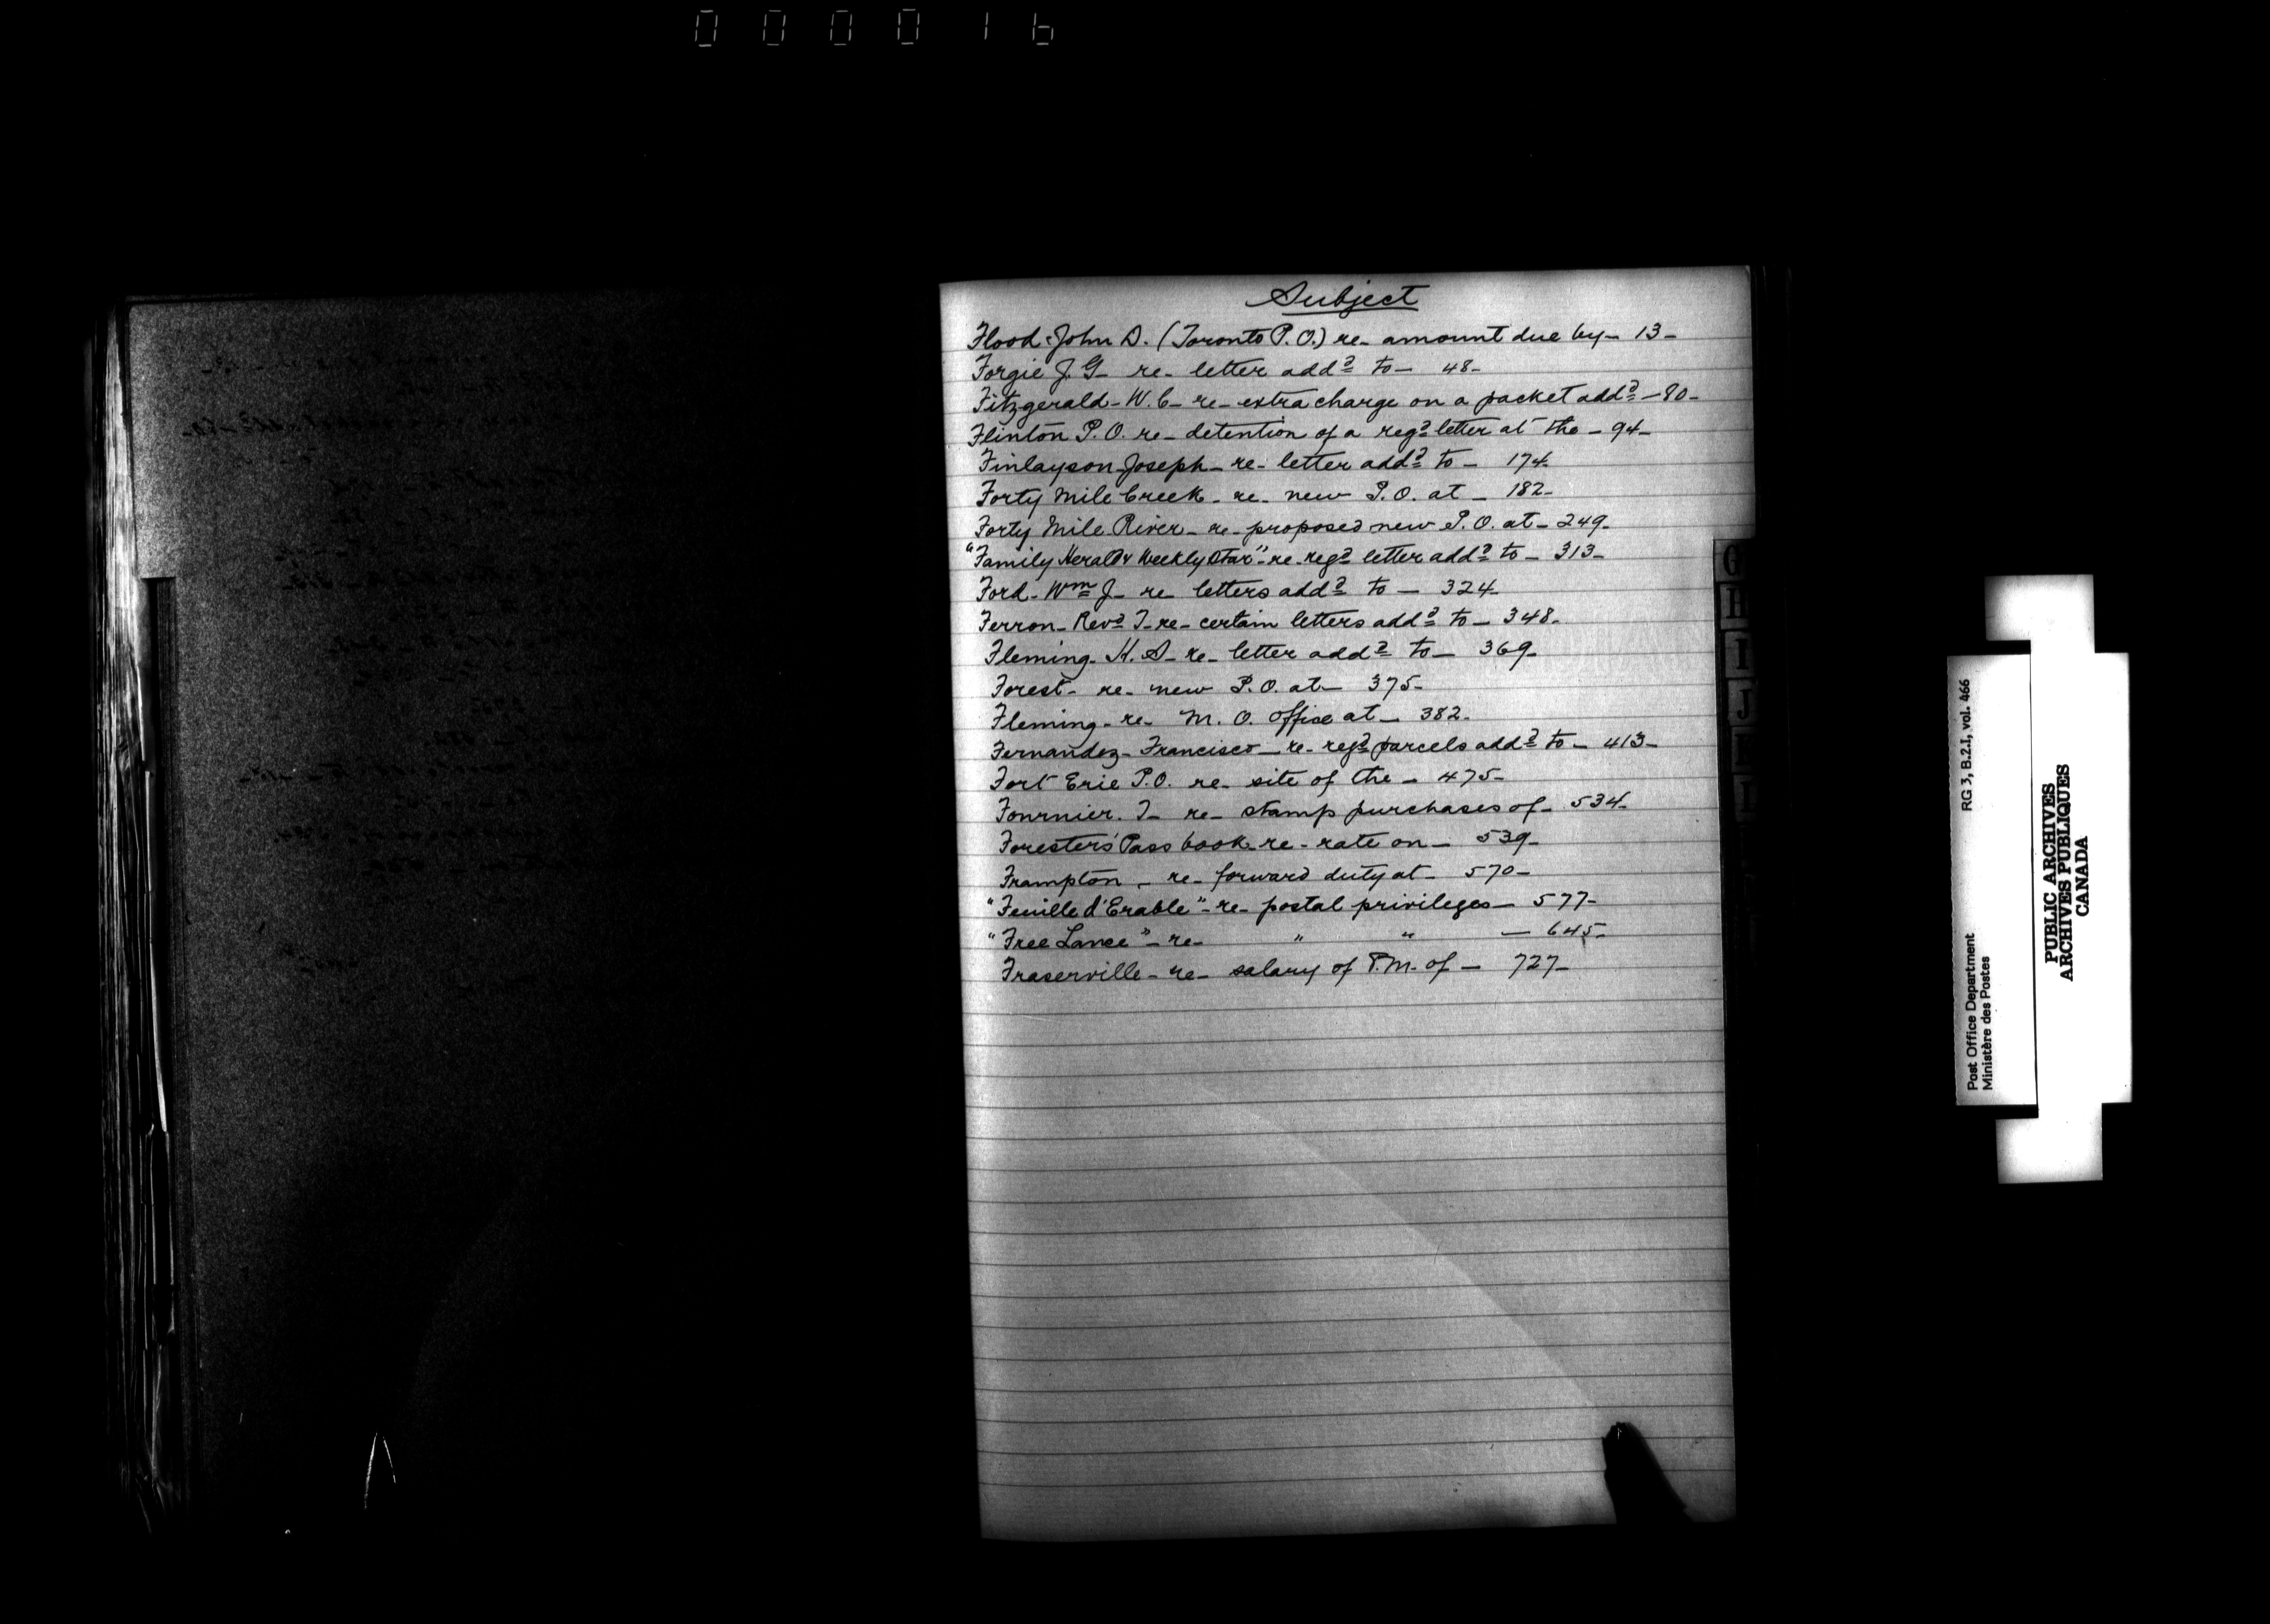 000016
Subject
Flood-John D. (Toronto P.O.) re- amount due by- 13-
Forgie J. G- re- letter addd to- 48-
Fitzgerald- W. C- re- extra charge on a packet addd -80-
Flinton P.O. re- detention of a regd letter at the - 94-
Finlayson-Joseph- re- letter addd to- 174-
Forty Mile Creek- re- new P.O. at - 182-
Forty Mile River- re- proposed new P.O. at- 249-
"Family Herald & Weekly Star"- re- regd letter addd to- 313-
Ford- Wm J- re- letters addd to - 324-
Ferron- Revd T- re- certain letters addd to- 348-
Fleming- H. S- re- letter addd to- 369-
Forest- re- new P.O. at- 375-
Fleming- re- M. O. office at- 382-
Fernandez- Francisco- re- regd parcels addd to- 413-
Fort Erie P.O. re- site of the - 475-
Fournier. T- re- stamp purchases of- 534-
Foresters' Pass book- re- rate on- 539-
Frampton - re- forward duty at- 570-
"Feuille d'Erable"- re- postal privileges- 577-
"Free Lance"- re- " " - 645-
Fraserville- re- salary of P.M. of - 727-
G
H
I
J
Post Office Department RG 3, B.2.1, vol. 466
Ministère des Postes
PUBLIC ARCHIVES
ARCHIVES PUBLIQUES
CANADA